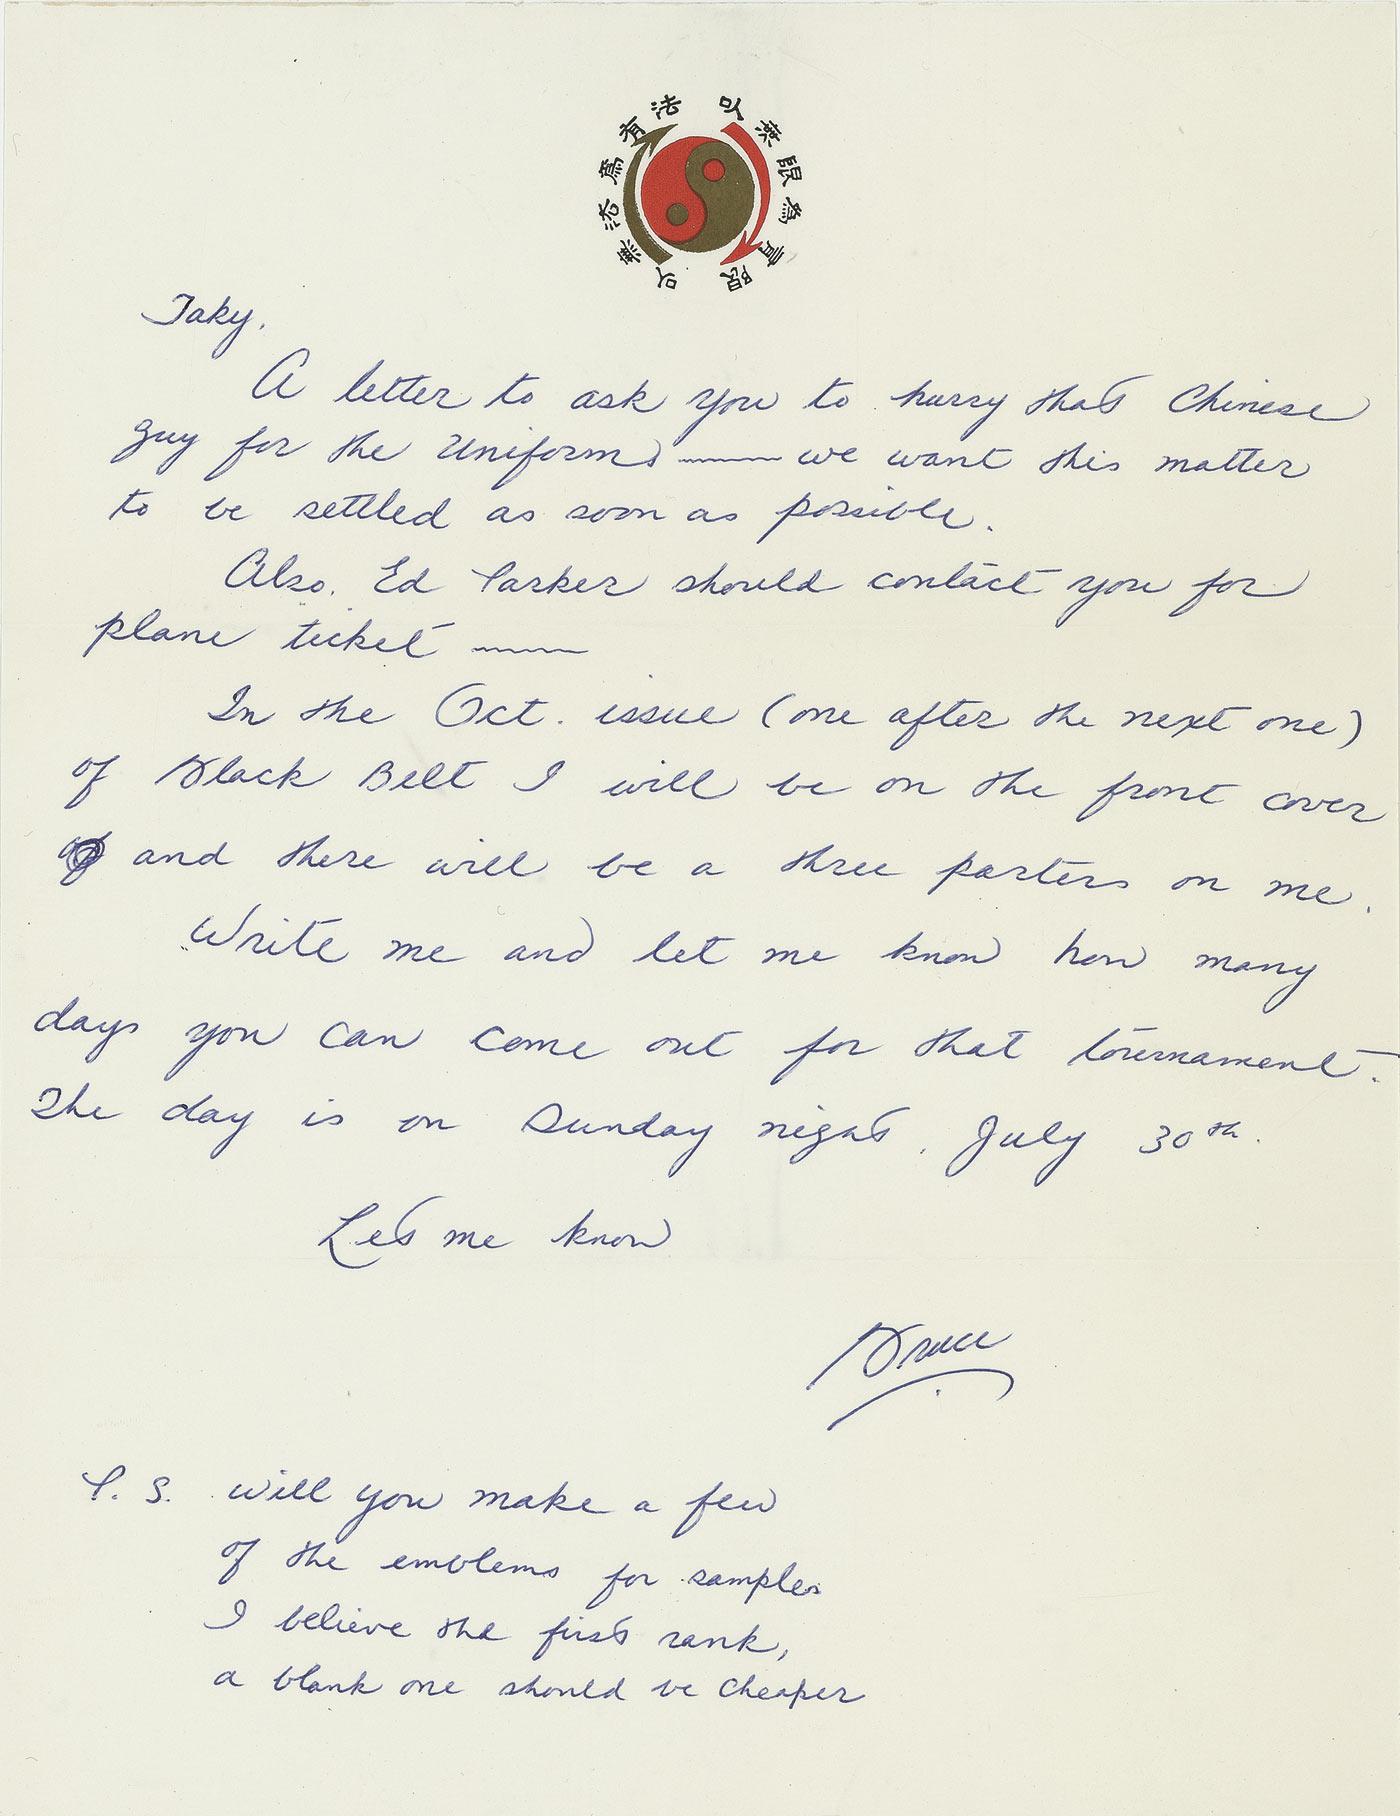 以無法為有法
以無限為有限
Taky,
A letter to ask you to hurry that Chinese
guy for the Uniforms —— we want this matter
to be settled as soon as possible.
Also, Ed Parker should contact you for
plane ticket ——
In the Oct. issue (one after the next one)
of Black Belt I will be on the front cover
and there will be a three parters on me.
Write me and let me know how many
days you can come out for that tournament.
The day is on Sunday night, July 30th.
Let me know
Bruce
P. S. will you make a few
of the emblems for samples
I believe the first rank,
a blank one should be cheaper